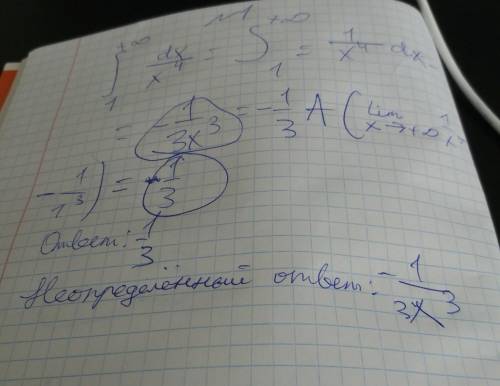 ∫₁^{+∞} dx/x⁴ = ∫₁^{+∞} = 1/x⁴ dx =
= -1/(3x³) = -1/3 A ( lim_{x→+∞} 1/x³
- 1/1³ ) = -1/3
Ответ: 1/3
Неопределённый ответ: -1/(3x³)